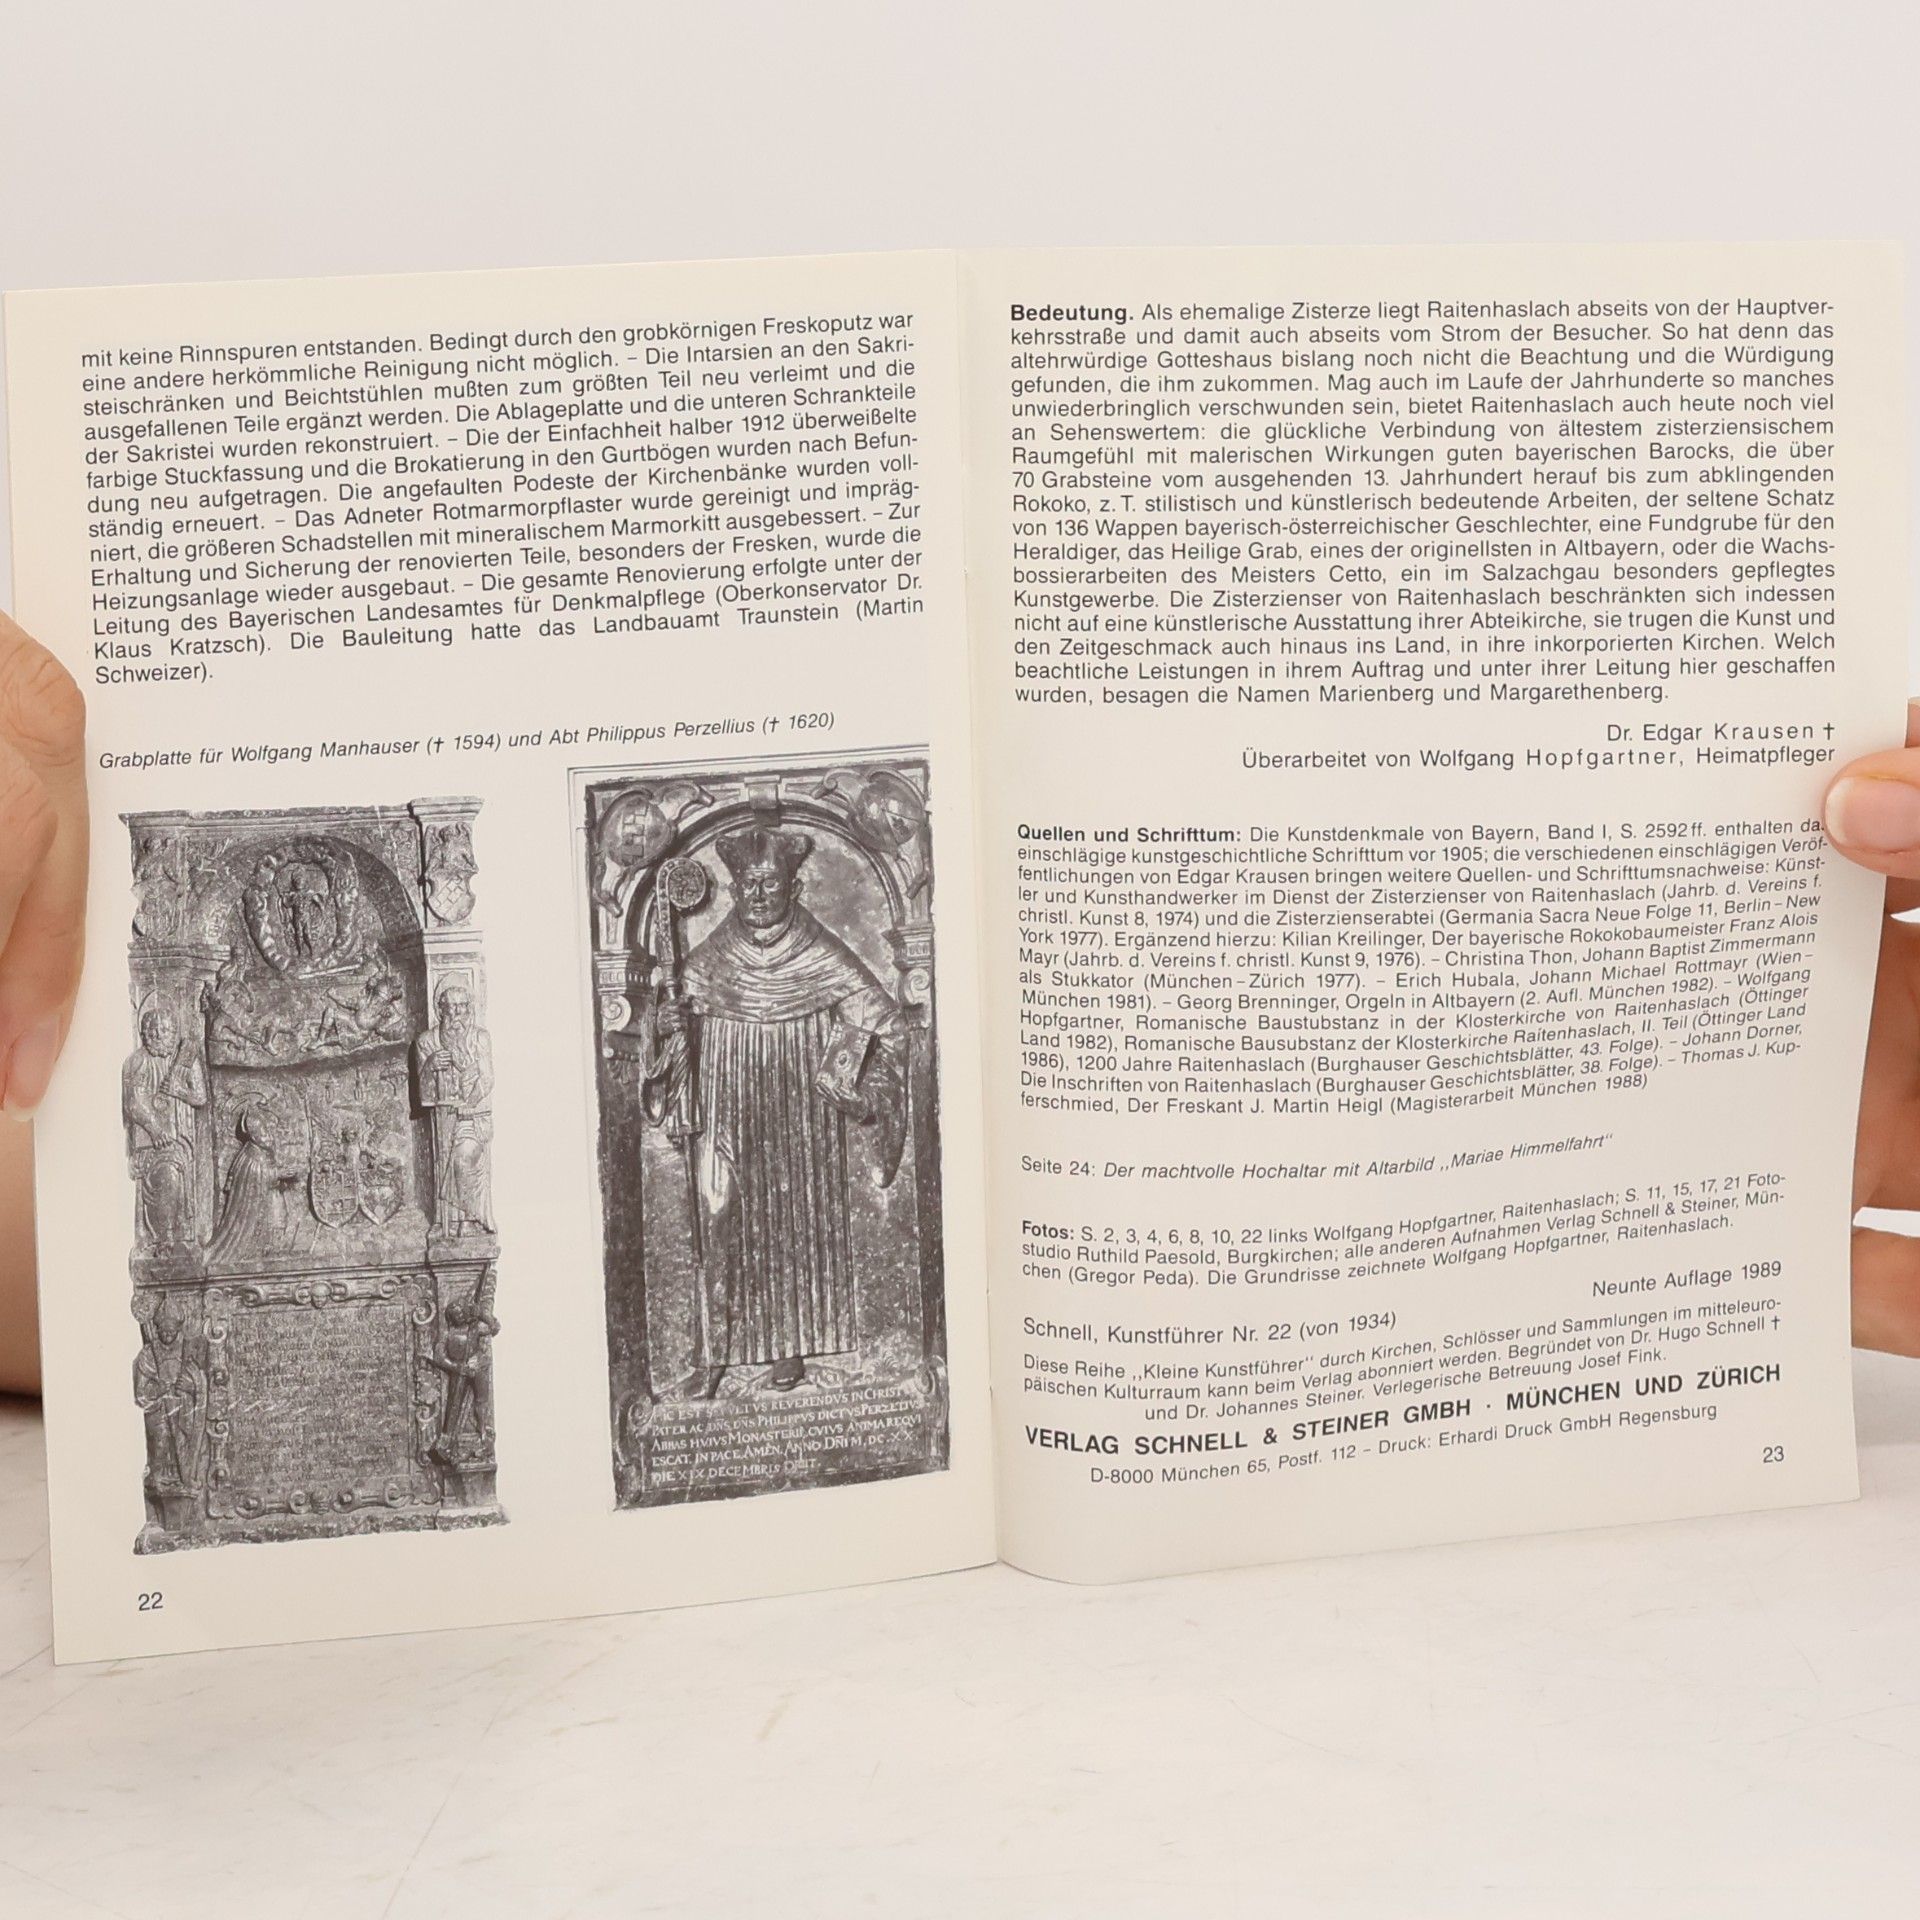 mit keine Rinnspuren entstanden. Bedingt durch den grobkörnigen Freskoputz war
eine andere herkömmliche Reinigung nicht möglich. – Die Intarsien an den Sakri-
steischränken und Beichtstühlen mußten zum größten Teil neu verleimt und die
ausgefallenen Teile ergänzt werden. Die Ablageplatte und die unteren Schrankteile
der Sakristei wurden rekonstruiert. – Die der Einfachheit halber 1912 überweißelte
farbige Stuckfassung und die Brokatierung in den Gurtbögen wurden nach Befun-
dung neu aufgetragen. Die angefaulten Podeste der Kirchenbänke wurden voll-
ständig erneuert. – Das Adneter Rotmarmorpflaster wurde gereinigt und impräg-
niert, die größeren Schadstellen mit mineralischem Marmorkitt ausgebessert. – Zur
Erhaltung und Sicherung der renovierten Teile, besonders der Fresken, wurde die
Heizungsanlage wieder ausgebaut. – Die gesamte Renovierung erfolgte unter der
Leitung des Bayerischen Landesamtes für Denkmalpflege (Oberkonservator Dr.
Klaus Kratzsch). Die Bauleitung hatte das Landbauamt Traunstein (Martin
Schweizer).
Grabplatte für Wolfgang Manhauser († 1594) und Abt Philippus Perzellius († 1620)
EST
REVERENDVS IN CHRIST
PATER AC DNS, DNS PHILIPPVS DICTVS PERZETIVS
ABBAS HVIVS MONASTERII, CVIVS ANIMA REQVI
ESCAT IN PACE AMEN, ANNO DNI M, DC, XX
DIE XIX DECEMBRIS OBIIT.
22
Bedeutung. Als ehemalige Zisterze liegt Raitenhaslach abseits von der Hauptver-
kehrsstraße und damit auch abseits vom Strom der Besucher. So hat denn das
altehrwürdige Gotteshaus bislang noch nicht die Beachtung und die Würdigung
gefunden, die ihm zukommen. Mag auch im Laufe der Jahrhunderte so manches
unwiederbringlich verschwunden sein, bietet Raitenhaslach auch heute noch viel
an Sehenswertem: die glückliche Verbindung von ältestem zisterziensischem
Raumgefühl mit malerischen Wirkungen guten bayerischen Barocks, die über
70 Grabsteine vom ausgehenden 13. Jahrhundert herauf bis zum abklingenden
Rokoko, z. T. stilistisch und künstlerisch bedeutende Arbeiten, der seltene Schatz
von 136 Wappen bayerisch-österreichischer Geschlechter, eine Fundgrube für den
Heraldiger, das Heilige Grab, eines der originellsten in Altbayern, oder die Wachs-
bossierarbeiten des Meisters Cetto, ein im Salzachgau besonders gepflegtes
Kunstgewerbe. Die Zisterzienser von Raitenhaslach beschränkten sich indessen
nicht auf eine künstlerische Ausstattung ihrer Abteikirche, sie trugen die Kunst und
den Zeitgeschmack auch hinaus ins Land, in ihre inkorporierten Kirchen. Welch
beachtliche Leistungen in ihrem Auftrag und unter ihrer Leitung hier geschaffen
wurden, besagen die Namen Marienberg und Margarethenberg.
Dr. Edgar Krausen †
Überarbeitet von Wolfgang Hopfgartner, Heimatpfleger
Quellen und Schrifttum: Die Kunstdenkmale von Bayern, Band I, S. 2592 ff. enthalten da
einschlägige kunstgeschichtliche Schrifttum vor 1905; die verschiedenen einschlägigen Veröf-
fentlichungen von Edgar Krausen bringen weitere Quellen- und Schrifttumsnachweise: Künst-
ler und Kunsthandwerker im Dienst der Zisterzienser von Raitenhaslach (Jahrb. d. Vereins f.
christl. Kunst 8, 1974) und die Zisterzienserabtei (Germania Sacra Neue Folge 11, Berlin – New
York 1977). Ergänzend hierzu: Kilian Kreilinger, Der bayerische Rokokobaumeister Franz Alois
Mayr (Jahrb. d. Vereins f. christl. Kunst 9, 1976). – Christina Thon, Johann Baptist Zimmermann
als Stukkator (München – Zürich 1977). – Erich Hubala, Johann Michael Rottmayr (Wien –
München 1981). – Georg Brenninger, Orgeln in Altbayern (2. Aufl. München 1982). – Wolfgang
Hopfgartner, Romanische Baustubstanz in der Klosterkirche von Raitenhaslach (Öttinger
Land 1982), Romanische Bausubstanz der Klosterkirche Raitenhaslach, II. Teil (Öttinger Land
1986), 1200 Jahre Raitenhaslach (Burghauser Geschichtsblätter, 43. Folge). – Johann Dorner,
Die Inschriften von Raitenhaslach (Burghauser Geschichtsblätter, 38. Folge). – Thomas J. Kup-
ferschmied, Der Freskant J. Martin Heigl (Magisterarbeit München 1988)
Seite 24: Der machtvolle Hochaltar mit Altarbild „Mariae Himmelfahrt“
Fotos: S. 2, 3, 4, 6, 8, 10, 22 links Wolfgang Hopfgartner, Raitenhaslach; S. 11, 15, 17, 21 Foto-
studio Ruthild Paesold, Burgkirchen; alle anderen Aufnahmen Verlag Schnell & Steiner, Mün-
chen (Gregor Peda). Die Grundrisse zeichnete Wolfgang Hopfgartner, Raitenhaslach.
Neunte Auflage 1989
Schnell, Kunstführer Nr. 22 (von 1934)
Diese Reihe „Kleine Kunstführer“ durch Kirchen, Schlösser und Sammlungen im mitteleuro-
päischen Kulturraum kann beim Verlag abonniert werden. Begründet von Dr. Hugo Schnell †
und Dr. Johannes Steiner. Verlegerische Betreuung Josef Fink.
VERLAG SCHNELL & STEINER GMBH · MÜNCHEN UND ZÜRICH
D-8000 München 65, Postf. 112 – Druck: Erhardi Druck GmbH Regensburg
23